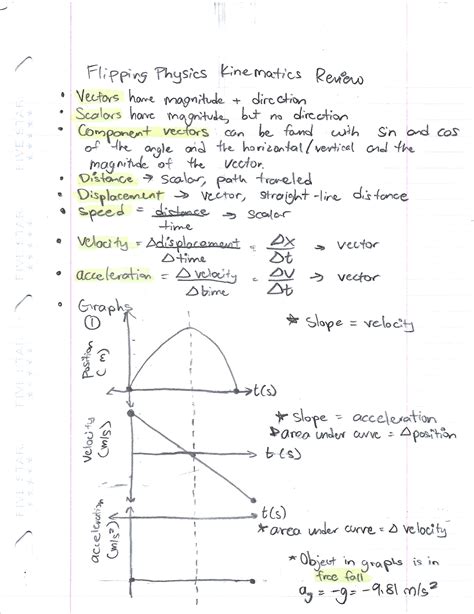 Flipping Physics Kinematics Review
• Vectors have magnitude + direction
• Scalars have magnitude, but no direction
• Component vectors can be found with sin and cos
of the angle and the horizontal/vertical and the
magnitude of the vector.
• Distance → scalar, path traveled
• Displacement → vector, straight-line distance
• Speed = distance/time → scalar
• Velocity = Δdisplacement/Δtime = Δx/Δt → vector
• acceleration = Δvelocity/Δtime = ΔV/Δt → vector
• Graphs
①
* Slope = velocity
Position (m)
t(s)
* Slope = acceleration
area under curve = Δposition
Velocity (m/s)
t(s)
t(s)
* area under curve = Δ velocity
acceleration (m/s²)
* Object in graphs is in
free fall
a_y = -g = -9.81 m/s²
FIVE STAR
FIVE STAR
FIVE STAR
FIVE STAR